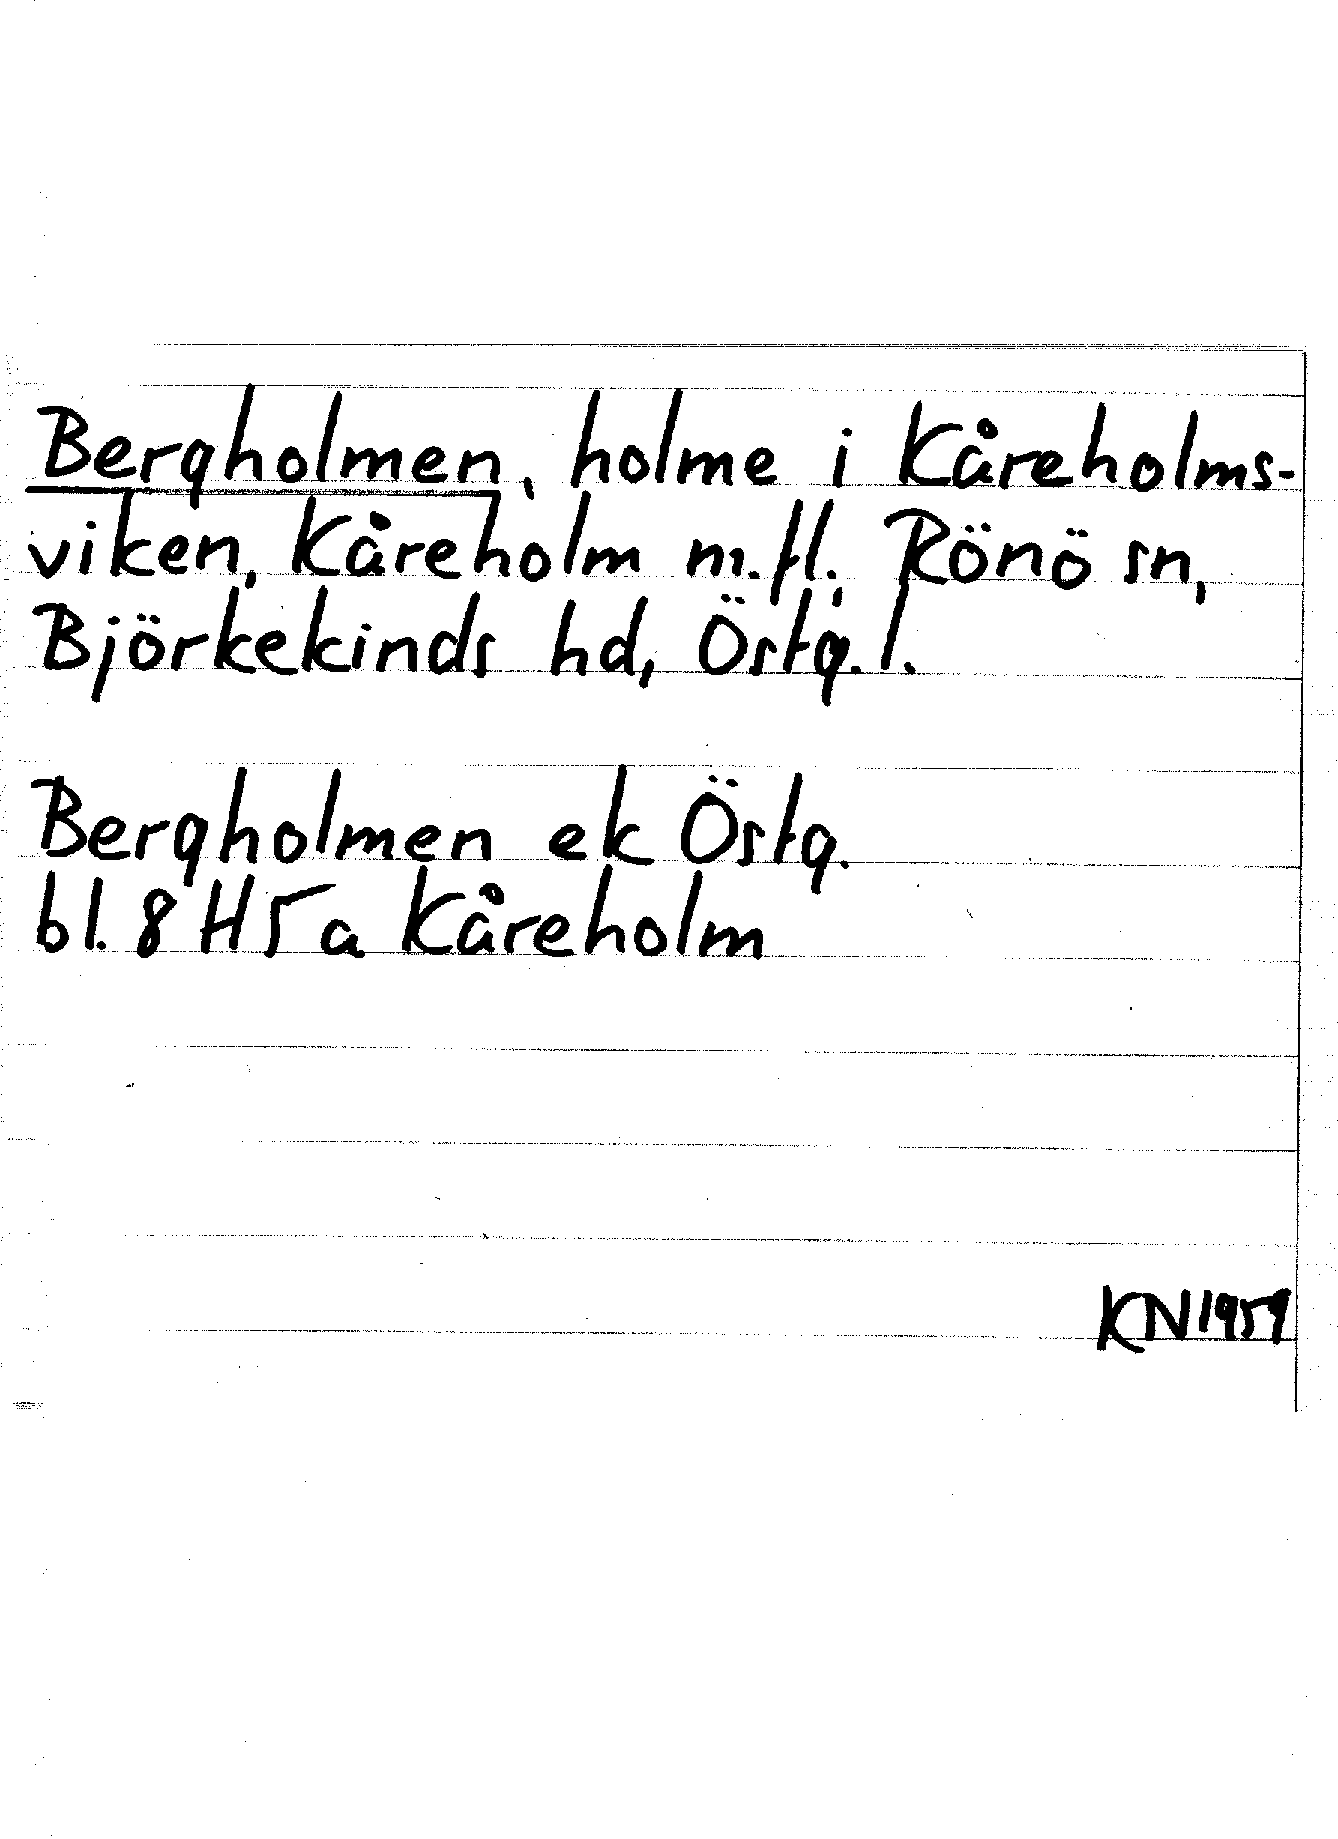 Bergholmen, holme i Kåreholms-
viken, Kåreholm m.fl., Rönö sn,
Björkekinds hd, Östg.l.
Bergholmen ek Östg.
bl. 8 H5a Kåreholm
KN1959